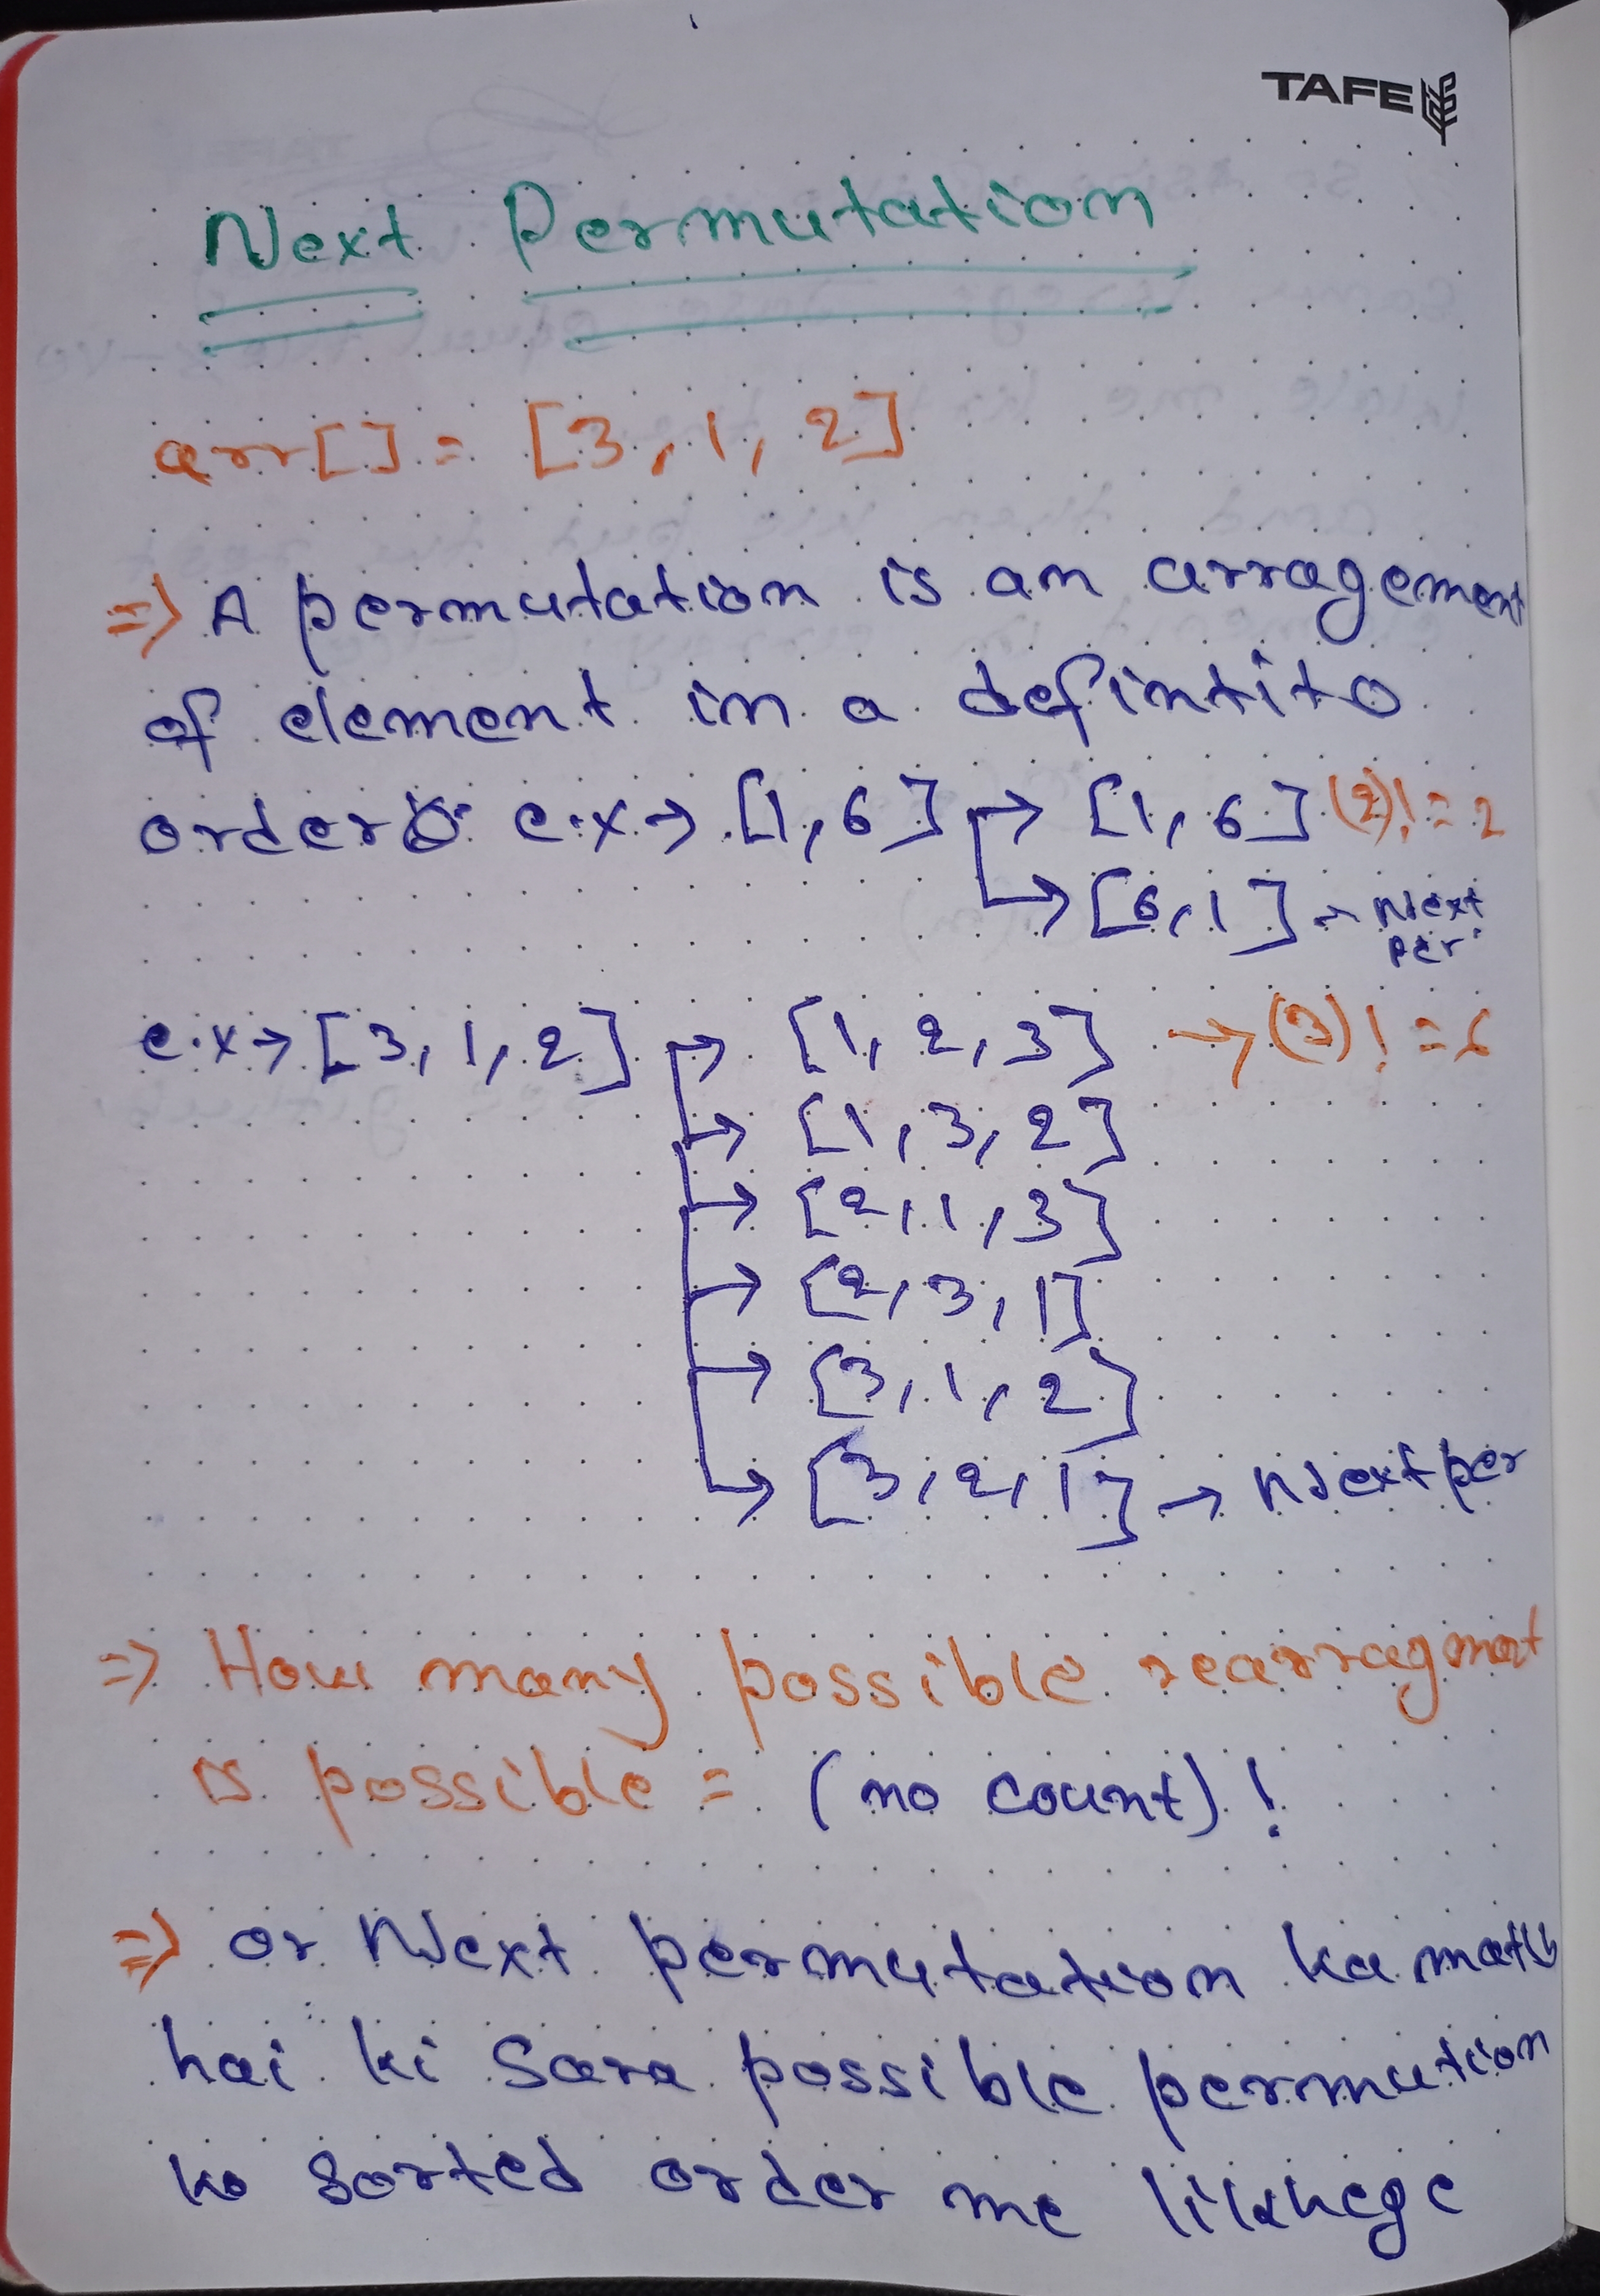 TAFE
Next Permutation
arr[] = [3, 1, 2]
=> A permutation is an arragement
of element in a defintito
order e.x → [1, 6] → [1, 6] (2)! = 2
→ [6, 1] → Next
per.
e.x → [3, 1, 2] → [1, 2, 3] → (3)! = 6
→ [1, 3, 2]
→ [2, 1, 3]
→ [2, 3, 1]
→ [3, 1, 2]
→ [3, 2, 1] → Next per
=> How many possible rearragment
is possible = (no count)!
=> or Next permutation ka matlb
hai ki Sara possible permution
ko sorted order me likhege